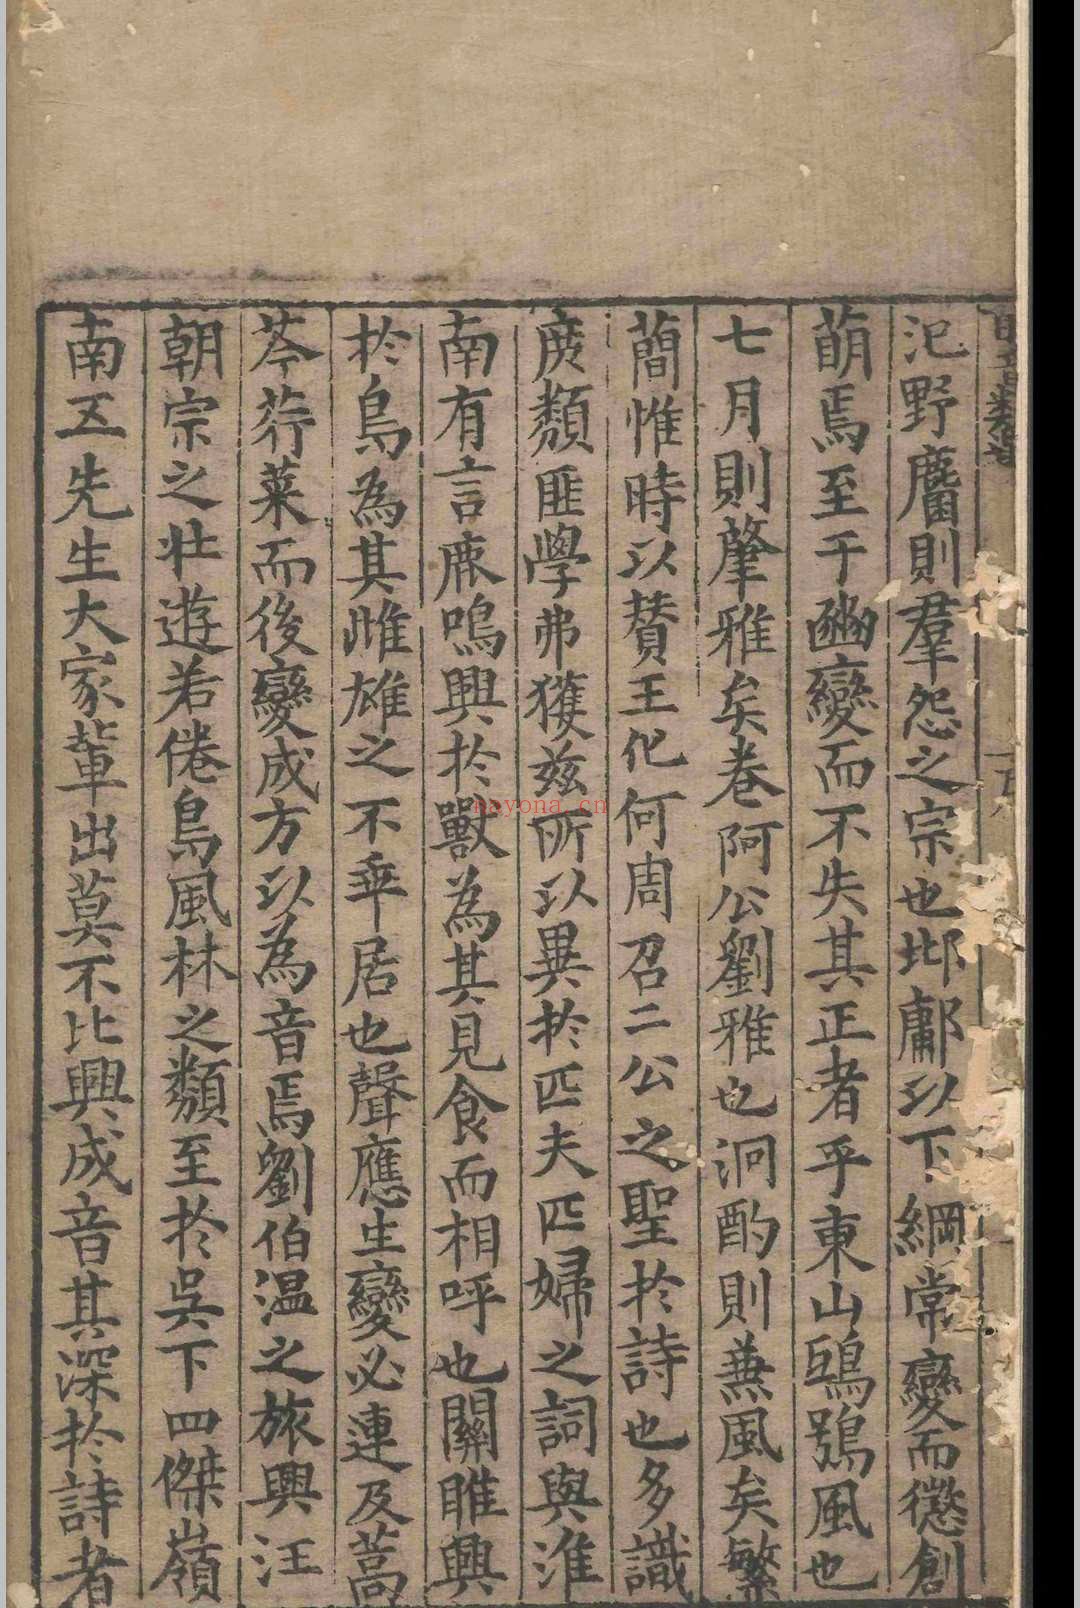 汜野麕則羣怨之宗也邶鄘以下綱常變而懲創
萌焉至于豳變而不失其正者乎東山鴟鴞風也
七月則肇雅矣卷阿公劉雅也泂酌則蕪風矣繁
蕳惟時以賛王化何周召二公之聖於詩也多識
庻類匪學弗獲兹所以異於匹夫匹婦之詞與淮
南有言鹿鳴興於獸為其見食而相呼也關雎興
於鳥為其雌雄之不乖居也聲應生變必連及蒿
芩荇菜而後變成方以為音焉劉伯温之旅興汪
朝宗之壯遊若倦鳥風林之類至於吳下四傑嶺
南五先生大家軰出莫不比興成音其深於詩者
bayona.cn